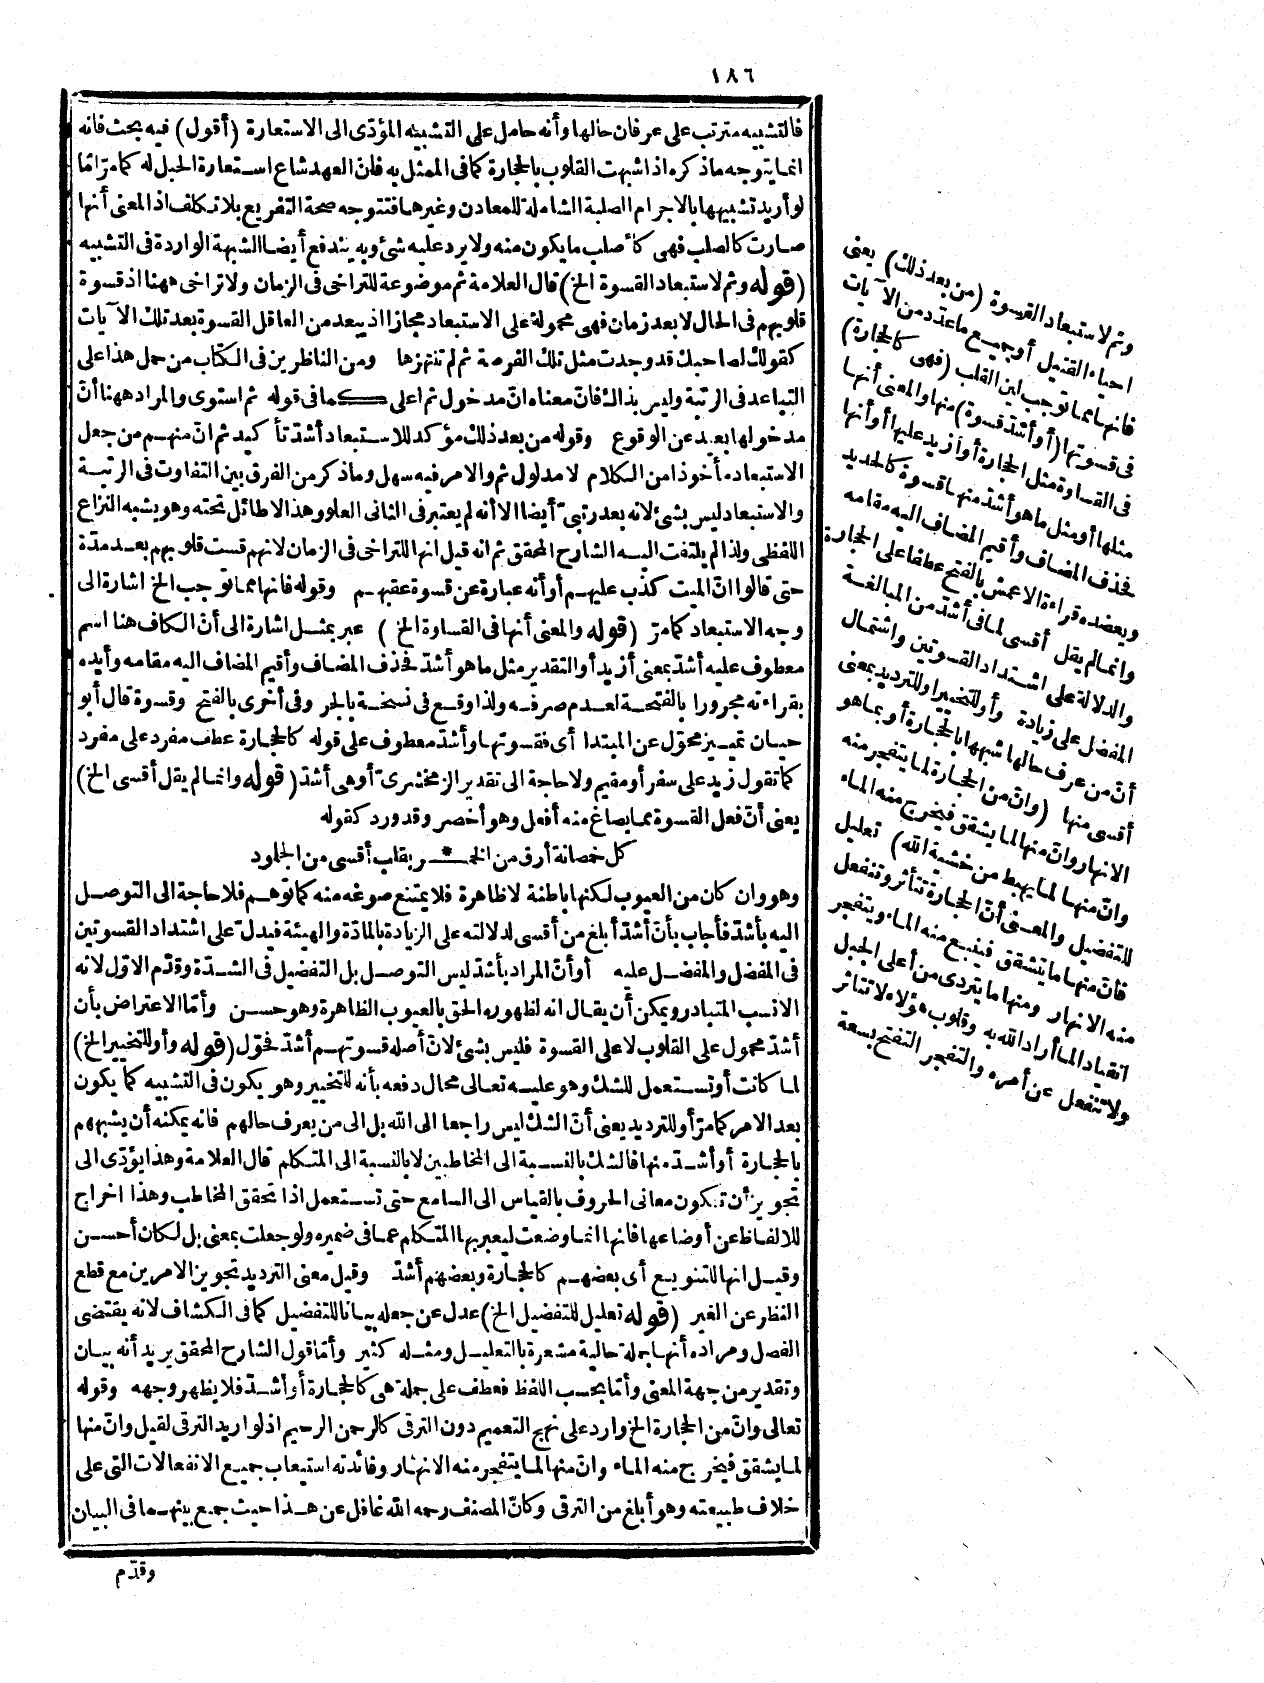 ١٨٦
فالتشبيه مترتب على عرفان حالها وأنه حامل على التشبيه المؤدّى الى الاستعارة (أقول) فيه بحث فانه
انما يتوجه ماذكره اذا شبهت القلوب بالحجارة كما فى الممثل به فانّ العهد شاع استعارة الحبل له كما مرّ امّا
لو أريد تشبيهها بالاجرام الصلبة الشاملة للمعادن وغيرها فتتوجه صحة التفريع بلا تكلف اذ المعنى أنها
صارت كالصلب فهى كأصلب ما يكون منه ولا يرد عليه شئ وبه يندفع أيضا الشبهة الواردة فى التشبيه
(قوله وثم لاستبعاد القسوة الخ) قال العلامة ثم موضوعة للتراخى فى الزمان ولا تراخى ههنا اذ قسوة
قلوبهم فى الحال لا بعد زمان فهى محمولة على الاستبعاد مجازا اذ يبعد من العاقل القسوة بعد تلك الآيات
كقولك لصاحبك قد وجدت مثل تلك الفرصة ثم لم تنتهزها ومن الناظرين فى الكتاب من حمل هذا على
التباعد فى الرتبة وليس بذاك فانّ معناه انّ مدخول ثم اعلى كما فى قوله ثم استوى والمراد ههنا أنّ
مدخولها بعيد عن الوقوع وقوله من بعد ذلك مؤكد للاستبعاد أشدّ تأكيد ثم انّ منهم من جعل
الاستبعاد مأخوذا من الكلام لا مدلول ثم والامر فيه سهل وما ذكر من الفرق بين التفاوت فى الرتبة
والاستبعاد ليس بشئ لانه بعد رتبىّ أيضا الا أنه لم يعتبر فى الثانى العلو وهذا لا طائل تحته وهو يشبه النزاع
اللفظى ولذا لم يلتفت اليه الشارح المحقق ثم انه قيل انها للتراخى فى الزمان لانهم قست قلوبهم بعد مدّة
حتى قالوا انّ الميت كذب عليهم أو أنه عبارة عن قسوة عقبهم وقوله فانها مما توجب الخ اشارة الى
وجه الاستبعاد كما مرّ (قوله والمعنى أنها فى القساوة الخ) عبر بمثل اشارة الى أنّ الكاف هنا اسم
معطوف عليه أشدّ بمعنى أزيد أو التقدير مثل ما هو أشدّ فحذف المضاف وأقيم المضاف اليه مقامه وأيده
بقراءته مجرورا بالفتحة لعدم صرفه ولذا وقع فى نسخة بالجر وفى أخرى بالفتح وقسوة قال أبو
حيان تمييز محوّل عن المبتدا أى فقسوتها وأشدّ معطوف على قوله كالحجارة عطف مفرد على مفرد
كما تقول زيد على سفر أو مقيم ولا حاجة الى تقدير الزمخشرىّ أو هى أشدّ (قوله وانما لم يقل أقسى الخ)
يعنى أنّ فعل القسوة مما يصاغ منه أفعل وهو أخصر وقد ورد كقوله
كل خمصانة أرق من الخمـ * ـر بقلب أقسى من الجلود
وهو وان كان من العيوب لكنها باطنة لا ظاهرة فلا يمتنع صوغه منه كما توهم فلا حاجة الى التوصل
اليه بأشدّ فأجاب بأن أشدّ أبلغ من أقسى لدلالته على الزيادة بالمادّة والهيئة فيدلّ على اشتداد القسوتين
فى المفضل والمفضل عليه أو أنّ المراد بأشدّ ليس التوصل بل التفضيل فى الشدّة وقدّم الاوّل لانه
الانسب المتبادر ويمكن أن يقال انه لظهوره الحق بالعيوب الظاهرة وهو حسن وأمّا الاعتراض بأن
أشدّ محمول على القلوب لا على القسوة فليس بشئ لانّ أصله قسوتهم أشدّ فحوّل (قوله وأو للتخيير الخ)
لما كانت أو تستعمل للشك وهو عليه تعالى محال دفعه بأنه للتخيير وهو يكون فى التشبيه كما يكون
بعد الامر كما مرّ أو للترديد يعنى أنّ الشك ليس راجعا الى الله بل الى من يعرف حالهم فانه يمكنه أن يشبههم
بالحجارة أو أشدّ منها فالشك بالنسبة الى المخاطبين لا بالنسبة الى المتكلم قال العلامة وهذا يؤدّى الى
تجويز أن تكون معانى الحروف بالقياس الى السامع حتى تستعمل اذا تحقق المخاطب وهذا اخراج
للالفاظ عن أوضاعها فانها انما وضعت ليعبر بها المتكلم عما فى ضميره ولو جعلت بمعنى بل لكان أحسن
وقيل انها للتنويع أى بعضهم كالحجارة وبعضهم أشدّ وقيل معنى الترديد تجويز الامرين مع قطع
النظر عن الغير (قوله تعليل للتفضيل الخ) عدل عن جعله بيانا للتفضيل كما فى الكشاف لانه يقتضى
الفصل ومراده أنها جملة حالية مشعرة بالتعليل ومثله كثير وأمّا قول الشارح المحقق يريد أنه بيان
وتقدير من جهة المعنى وأمّا بحسب اللفظ فعطف على جملة هى كالحجارة أو أشدّ فلا يظهر وجهه وقوله
تعالى وانّ من الحجارة الخ وارد على نهج التعميم دون الترقى كالرحمن الرحيم اذ لو اريد الترقى لقيل وانّ منها
لما يشقق فيخرج منه الماء وانّ منها لما يتفجر منه الانهار وفائدته استيعاب جميع الانفعالات التى على
خلاف طبيعته وهو أبلغ من الترقى وكانّ المصنف رحمه الله غافل عن هذا حيث جمع بينهما فى البيان
وقدّم
وثم لاستبعاد القسوة (من بعد ذلك) يعنى
احياء القتيل أو جميع ما عدّد من الآيات
فانها مما توجب لين القلب (فهى كالحجارة)
فى قسوتها (أو أشدّ قسوة) منها والمعنى أنها
فى القساوة مثل الحجارة أو أزيد عليها أو أنها
مثلها أو مثل ما هو أشدّ منها قسوة كالحديد
فحذف المضاف وأقيم المضاف اليه مقامه
ويعضده قراءة الاعمش بالفتح عطفا على الحجارة
وانما لم يقل أقسى لما فى أشدّ من المبالغة
والدلالة على اشتداد القسوتين واشتمال
المفضل على زيادة وأو للتخيير أو للترديد بمعنى
أنّ من عرف حالها شبهها بالحجارة أو بما هو
أقسى منها (وانّ من الحجارة لما يتفجر منه
الانهار وانّ منها لما يشقق فيخرج منه الماء
وانّ منها لما يهبط من خشية الله) تعليل
للتفضيل والمعنى أنّ الحجارة تتأثر وتنفعل
فانّ منها ما يتشقق فينبع منه الماء ويتفجر
منه الانهار ومنها ما يتردى من أعلى الجبل
انقيادا لما أراد الله به وقلوب هؤلاء لا تتأثر
ولا تنفعل عن أمره والتفجر التفتح بسعة